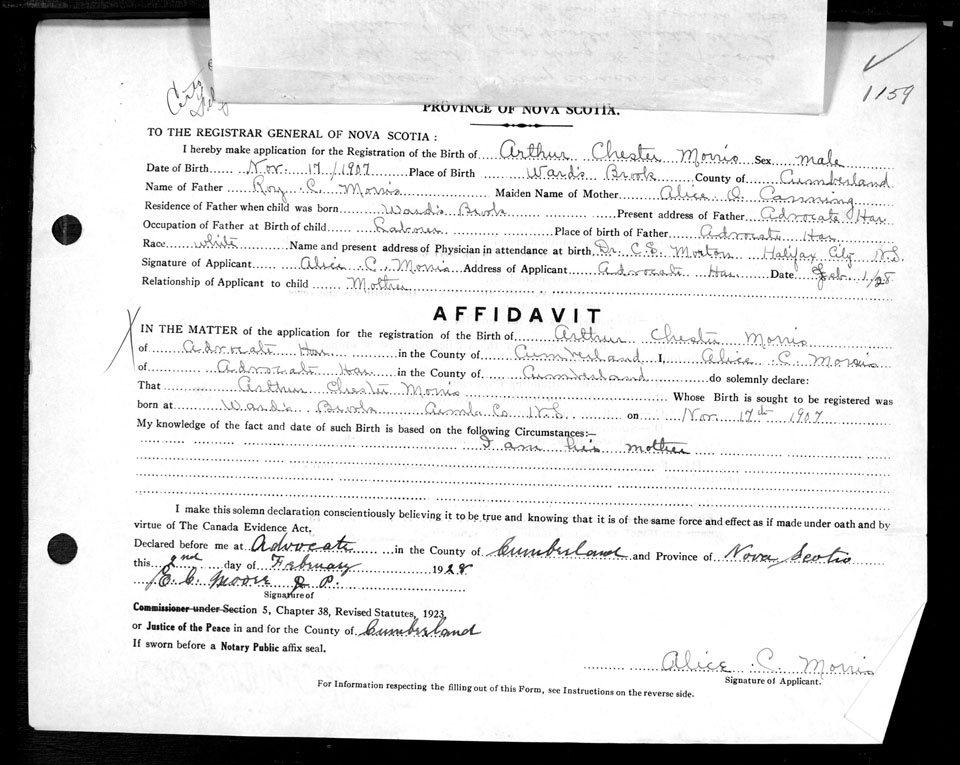 1159
PROVINCE OF NOVA SCOTIA.
TO THE REGISTRAR GENERAL OF NOVA SCOTIA :
I hereby make application for the Registration of the Birth of Arthur Chester Morris Sex male
Date of Birth Nov. 17/1907 Place of Birth Ward's Brook County of Cumberland
Name of Father Roy C. Morris Maiden Name of Mother Alice O. Canning
Residence of Father when child was born Ward's Brook Present address of Father Advocate Har
Occupation of Father at Birth of child Laborer Place of birth of Father Advocate Har
Race white Name and present address of Physician in attendance at birth Dr. C.E. Morton Halifax City N.S.
Signature of Applicant Alice C. Morris Address of Applicant Advocate Har Date Feb 1/28
Relationship of Applicant to child Mother
AFFIDAVIT
IN THE MATTER of the application for the registration of the Birth of Arthur Chester Morris
of Advocate Har in the County of Cumberland I, Alice C. Morris
of Advocate Har in the County of Cumberland do solemnly declare:
That Arthur Chester Morris Whose Birth is sought to be registered was
born at Ward's Brook Cumb. Co. N.S. on Nov 17th 1907
My knowledge of the fact and date of such Birth is based on the following Circumstances:—
I am his mother
I make this solemn declaration conscientiously believing it to be true and knowing that it is of the same force and effect as if made under oath and by
virtue of The Canada Evidence Act.
Declared before me at Advocate in the County of Cumberland and Province of Nova Scotia
this 2nd day of February 1928
E. C. Moore J. P.
Signature of
Commissioner under Section 5, Chapter 38, Revised Statutes, 1923,
or Justice of the Peace in and for the County of Cumberland
If sworn before a Notary Public affix seal.
Alice C. Morris
Signature of Applicant.
For Information respecting the filling out of this Form, see Instructions on the reverse side.